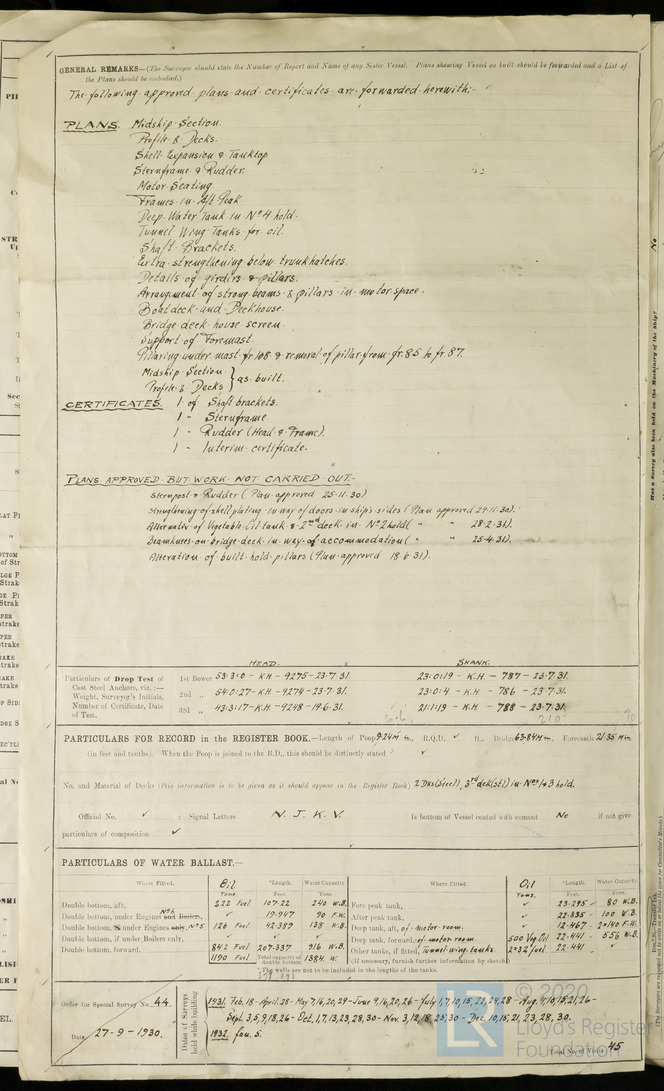 GENERAL REMARKS—(The Surveyor should state the Number of Report and Name of any Sister Vessel. Plans showing Vessel as built should be forwarded and a List of
the Plans should be embodied.)
The following approved plans and certificates are forwarded herewith:-
PLANS. Midship Section.
Profile & Decks.
Shell Expansion & Tanktop.
Sternframe & Rudder.
Motor Seating.
Frames in Aft Peak
Deep Water Tank in No 4 hold.
Tunnel Wing Tanks for oil.
Shaft Brackets.
Extra strengthening below trunkhatches.
Details of girders & pillars.
Arrangement of strong beams & pillars in motor space.
Boatdeck and Deckhouse.
Bridge deck house screen.
Support of Foremast.
Pillaring under mast fr. 108 & removal of pillar from fr. 85 to fr. 87.
Midship Section
Profile & Decks } as built.
CERTIFICATES. 1 of Shaft brackets.
1 - Sternframe
1 - Rudder (Head & Frame).
1 - Interim certificate.
PLANS APPROVED BUT WORK NOT CARRIED OUT:-
Sternpost & Rudder (Plan approved 25-11-30)
Strengthening of shell plating in way of doors in ship's sides (Plan approved 29-11-30).
of Vegetable Oil tank & 2nd deck in No 2 hold ( " " 28-2-31).
on bridge deck in way of accommodation ( " " 25-4-31).
Alteration of built hold pillars (Plan approved 18-6-31).
HEAD. SHANK.
Particulars of Drop Test of
Cast Steel Anchors, viz. :—
Weight, Surveyor's Initials,
Number of Certificate, Date
of Test.
1st Bower 53-3-0 - K.H - 9275 - 23-7-31. 23-0-19 - K.H. - 787 - 23-7-31.
2nd „ 54-0-27 - K.H - 9274 - 23-7-31. 23-0-4 - K.H - 786 - 23-7-31.
3rd „ 43-3-17 - K.H - 9248 - 19-6-31. 21-1-19 - K.H - 788 - 23-7-31.
PARTICULARS FOR RECORD in the REGISTER BOOK.—Length of Poop 9.24M ft., R.Q.D. ✓ ft., Bridge 63.84M ft. Forecastle 21.35M ft.
(in feet and tenths). When the Poop is joined to the B.D., this should be distinctly stated ✓
No. and Material of Decks (This information is to be given as it should appear in the Register Book) 2 Dks (Steel), 3rd dck (stl) in Nos 1 & 3 hold.
Official No. ✓ ; Signal Letters N. J. K. V. Is bottom of Vessel coated with cement No if not give
particulars of composition ✓
PARTICULARS OF WATER BALLAST.—
Where Fitted. Oil Tons. *Length. Feet. Water Capacity. Tons.
Double bottom, aft, 222 Fuel 107.22 240 W.B.
Double bottom, under Engines and Boilers, No 6 ✓ 19.947 90 F.W.
Double bottom, if under Engines only, No 5 126 Fuel 42.389 138 W.B.
Double bottom, if under Boilers only, ✓ ✓ ✓
Double bottom, forward, 842 Fuel 207.337 916 W.B.
1190 Fuel Total capacity of double bottom 1384 W.
Where Fitted. Oil Tons. *Length. Feet. Water Capacity. Tons.
Fore peak tank, ✓ 23.295 - 80 W.B.
After peak tank, ✓ 22.835 - 100 W.B.
Deep tank, aft, of motor room. ✓ 12.467 - 2×140 F.W.
Deep tank, forward, of motor room 500 Veg Oil 22.441 - 556 W.B.
Other tanks, if fitted, Tunnel wing tanks. 2×32 Fuel 22.441 ✓
(If necessary, furnish further information by sketch)
*The wells are not to be included in the lengths of the tanks.
Order for Special Survey No. 44.
Date 27-9-1930.
Dates of Surveys held while building
1931. Feb. 18 - April. 28 - May 7, 16, 20, 29 - June 9, 16, 20, 26 - July 1, 7, 10, 15, 21, 24, 28 - Aug. 4, 10, 15, 21, 26 -
Sept. 3, 5, 9, 13, 26 - Oct. 1, 7, 13, 23, 28, 30 - Nov. 3, 12, 18, 25, 30 - Dec. 10, 15, 21, 23, 28, 30.
1932. Jan. 5.
Total No. of Visits 45
© 2020
LR
Lloyd's Register
Foundation